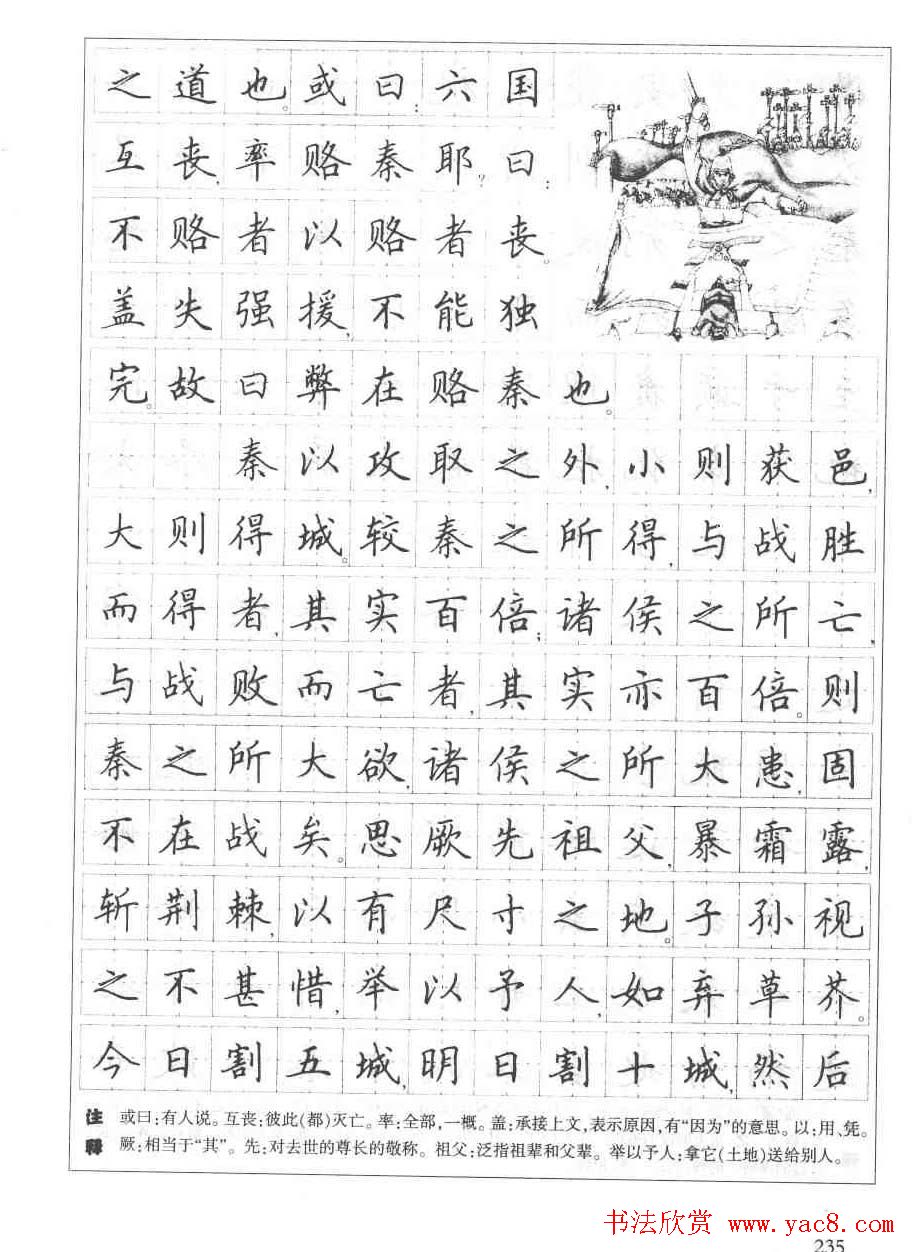 之道也。或曰:六国
互丧,率赂秦耶?曰:
不赂者以赂者丧。
盖失强援,不能独
完。故曰弊在赂秦也。
秦以攻取之外,小则获邑,
大则得城。较秦之所得,与战胜
而得者,其实百倍;诸侯之所亡,
与战败而亡者,其实亦百倍。则
秦之所大欲,诸侯之所大患,固
不在战矣。思厥先祖父,暴霜露,
斩荆棘,以有尺寸之地。子孙视
之不甚惜,举以予人,如弃草芥。
今日割五城,明日割十城,然后
注释
或曰:有人说。互丧:彼此(都)灭亡。率:全部,一概。盖:承接上文,表示原因,有“因为”的意思。以:用、凭。
厥:相当于“其”。先:对去世的尊长的敬称。祖父:泛指祖辈和父辈。举以予人:拿它(土地)送给别人。
书法欣赏 www.yac8.com
235